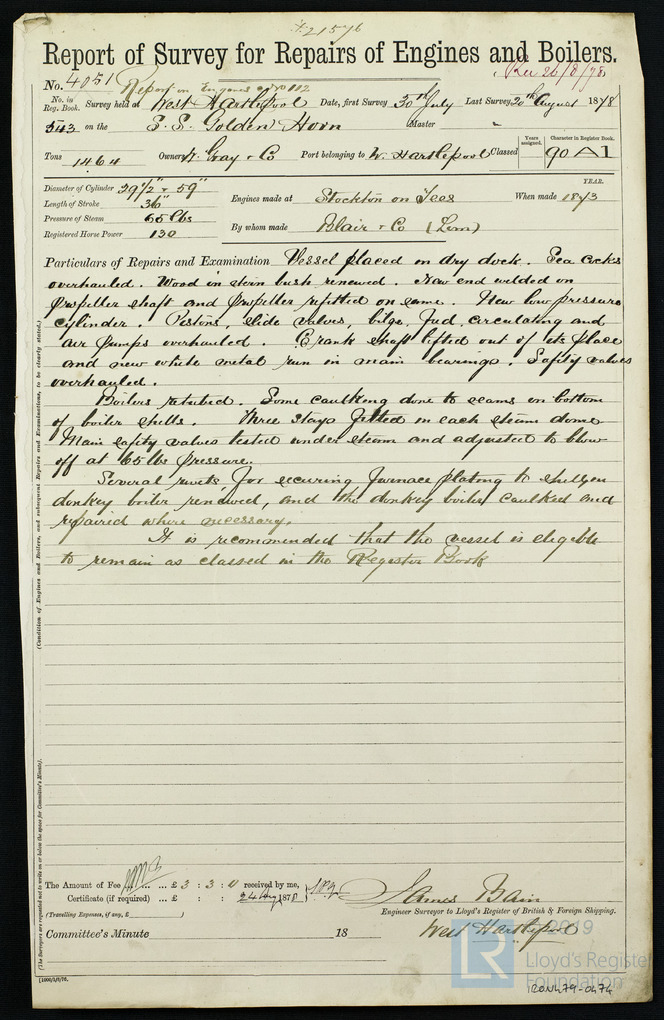 Report of Survey for Repairs of Engines and Boilers.
No. 4051 Report on Engines No 112
Rec 26/8/78
No. in Reg. Book. Survey held at West Hartlepool Date, first Survey 30th July Last Survey 20th August 1878
543 on the S.S. Golden Horn Master
Tons 1464 Owners W. Gray & Co Port belonging to W. Hartlepool Classed Years assigned. Character in Register Book. 90 A1
Diameter of Cylinder 29½" & 59"
Length of Stroke 36"
Pressure of Steam 65 lbs
Registered Horse Power 130
Engines made at Stockton on Tees When made YEAR. 1873
By whom made Blair & Co (Lim)
Particulars of Repairs and Examination Vessel placed in dry dock. Sea cocks
overhauled. Wood in stern bush renewed. New end welded on
propeller shaft and propeller refitted on same. New low pressure
cylinder. Pistons, slide valves, bilge, feed, circulating and
air pumps overhauled. Crank shaft lifted out of its place
and new white metal run in main bearings. Safety valves
overhauled.
Boilers retubed. Some caulking done to seams on bottom
of boiler shells. Three stays fitted in each steam dome
Main safety valves tested under steam and adjusted to blow
off at 65 lbs pressure.
Several rivets for securing furnace plating to shell in
donkey boiler renewed, and the donkey boiler caulked and
repaired where necessary.
It is recommended that the vessel is eligible
to remain as classed in the Register Book
(Condition of Engines and Boilers, and subsequent Repairs and Examinations, to be clearly stated.)
(The Surveyors are requested not to write on or below the space for Committee's Minute).
The Amount of Fee ... £3 : 3 : 0 received by me,
Certificate (if required) ... £ : : 24 Aug 1878
(Travelling Expenses, if any, £ )
James Bain
Engineer Surveyor to Lloyd's Register of British & Foreign Shipping.
Committee's Minute 18
West Hartlepool
LR
©2019
Lloyd's Register
Foundation
IRON479-0474